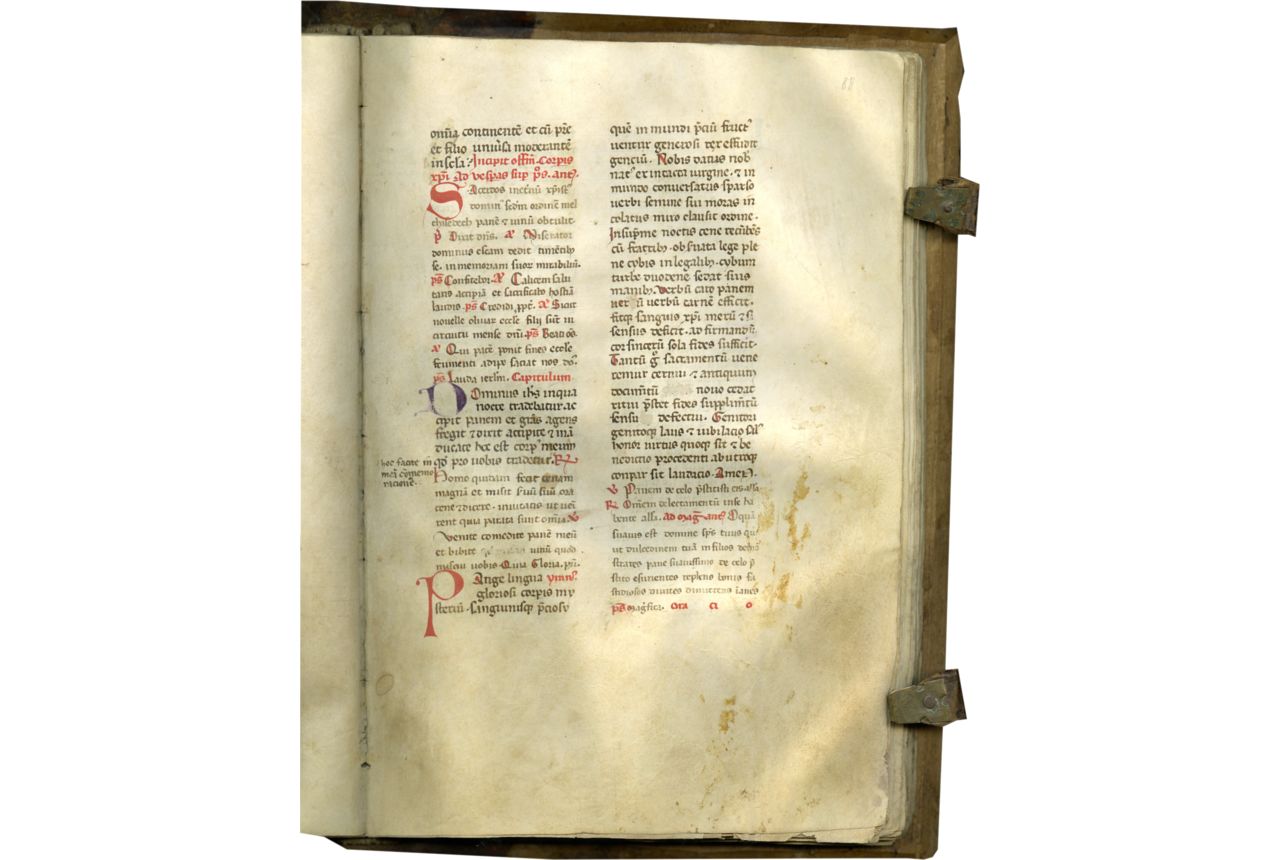 68
omīa continentē et cū pr̄e
et filio uniūsa moderantē
in scl̄a. Incipit offm̄. Corpis
xp̄i Ad vesp̄as sup p̄s. ant̄.
Sacerdos in et̄nū xp̄ist᷒
domin᷒ sedm ordinē mel
chisedech panē ⁊ uinū obtulit.
p̄ Dixit dn̄s. a᷒ Miserator
dominus escam dedit timētib᷒
se. in memoriam suor᷒ mirabiliū.
ps̄ Confitebor. a᷒ Calicem salu
taris accipiā et sacrificabo hostiā
laudis. ps̄ Credidi, a᷒ Sicut
nouelle oliuar᷒ eccl̄e filii sint in
circuitu mense dn̄i. ps̄ Beati ōs.
a᷒ Qui pacē ponit fines eccl̄e
frumenti adipe saciat nos dn̄s.
ps̄ Lauda ierl̄m. Capitulum
Dominus ihs̄ in qua
nocte tradebatur. ac
cipit panem et grās agens
fregit ⁊ dixit accipite ⁊ mā
ducate hoc est corp᷒ meum
qd̄ pro uobis tradetur. R
hoc facite in
meā cōmemo
racionē.
Homo quidam fecit cenam
magnā et misit suū suū ora
cene dicere. inuitatis ut uen̄
rent quia parata sunt omīa. v
Venite comedite panē meū
et bibite uinū quod
miscui uobis. Quia Gloria. pr̄i.
Pange lingua ymn᷒.
gloriosi corpis my
steriū. Sanguinisq; p̄ciosi
quē in mundi p̄ciū fruct᷒
ventur generosi rex effudit
genciū. Nobis datus nob᷒
nat᷒ ex intacta uirgine. ⁊ in
mundo conuersatus sparso
uerbi semine sui moras in
colatus miro clausit ordine.
In sup̄me noctis cene recūbēs
cū fratrib᷒. obs̄uata lege ple
ne cobis in legalib᷒. cobum
turbe duodene se dat suis
manib᷒. Verbū caro panem
uer ū uerbū carnē efficit.
fitq; sanguis xp̄i merū ⁊ si
sensus deficit. ad firmandū
cor sincerū sola fides sufficit.
Tantū g̊ sacramentū uene
remur cernui ⁊ antiquum
documn̄tū nouo cedat
ritui p̄stet fides supplimn̄tū
sensu defectui. Genitori
genitoq; laus ⁊ iubilacio sal᷒
honor uirtus quoq; sit ⁊ be
nedictio procedenti ab utroq;
conpar sit laudacio. Amen.
v Panem de celo p̄stitisti eis. all̄a
R Omēm delectamentū in se ha
bente all̄a. ad mag̅ ant̄ O quā
suauis est domine sp̄s tuus qui
ut dulcedinem tuā in filios demō
strares pane suauissimo de celo p̄
stito esurientes reples bonis fa
stidiosos diuites dimittens inanes
ps̄ magficat. ora ci o